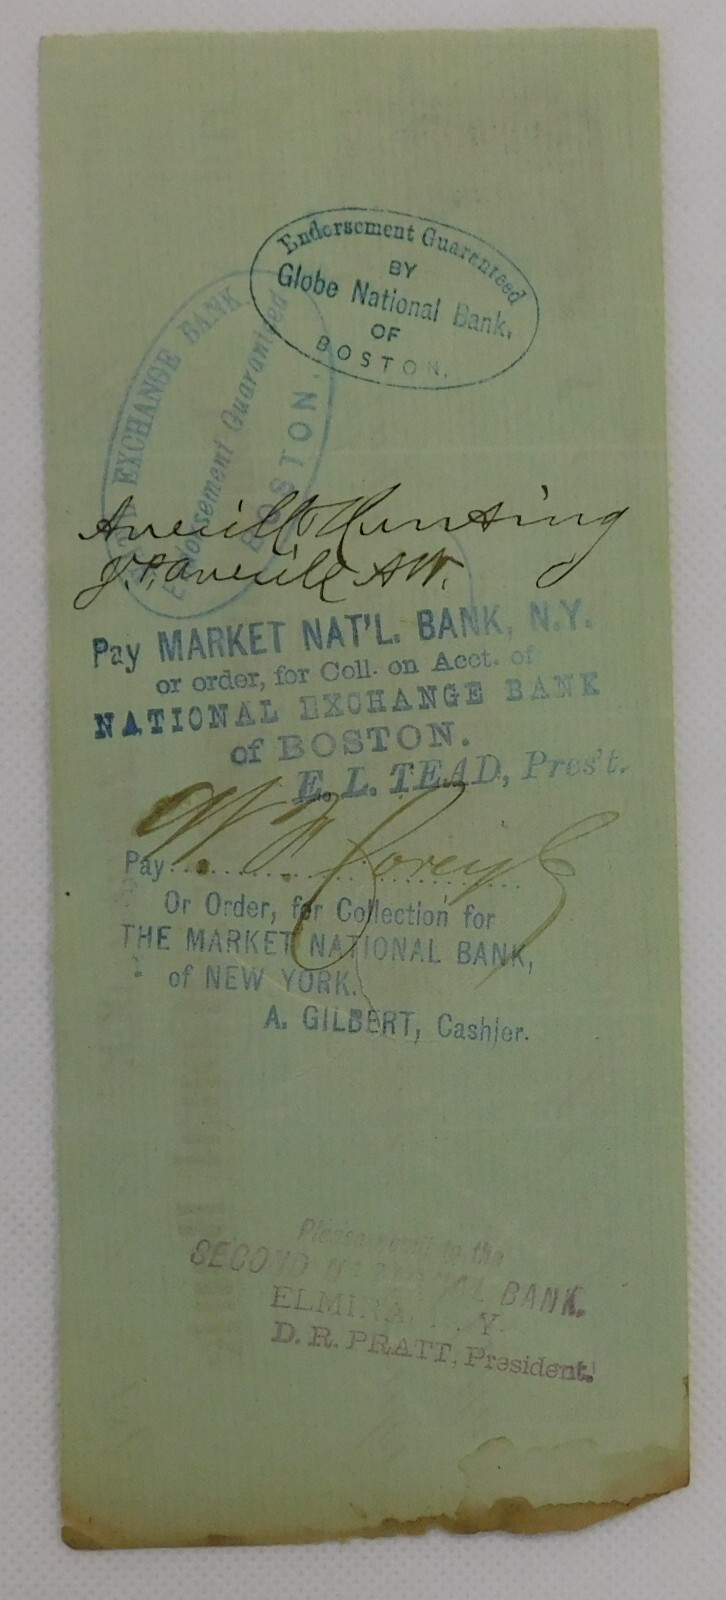 Endorsement Guaranteed
BY
Globe National Bank,
OF
BOSTON.
EXCHANGE BANK.
Endorsement Guaranteed
BOSTON.
Averill & Hunting
J.P. Averill Att.
Pay MARKET NAT'L. BANK, N.Y.
or order, for Coll. on Acct. of
NATIONAL EXCHANGE BANK
of BOSTON.
E. L. TEAD, Pres't.
Pay
Or Order, for Collection for
THE MARKET NATIONAL BANK,
of NEW YORK.
A. GILBERT, Cashier.
Please remit to the
SECOND NATIONAL BANK.
ELMIRA, N.Y.
D. R. PRATT, President.